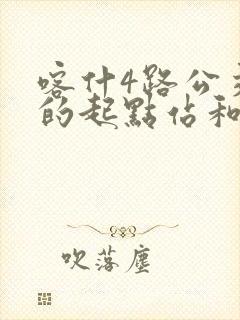 喀什4路公交
的起點佔和
吹落塵